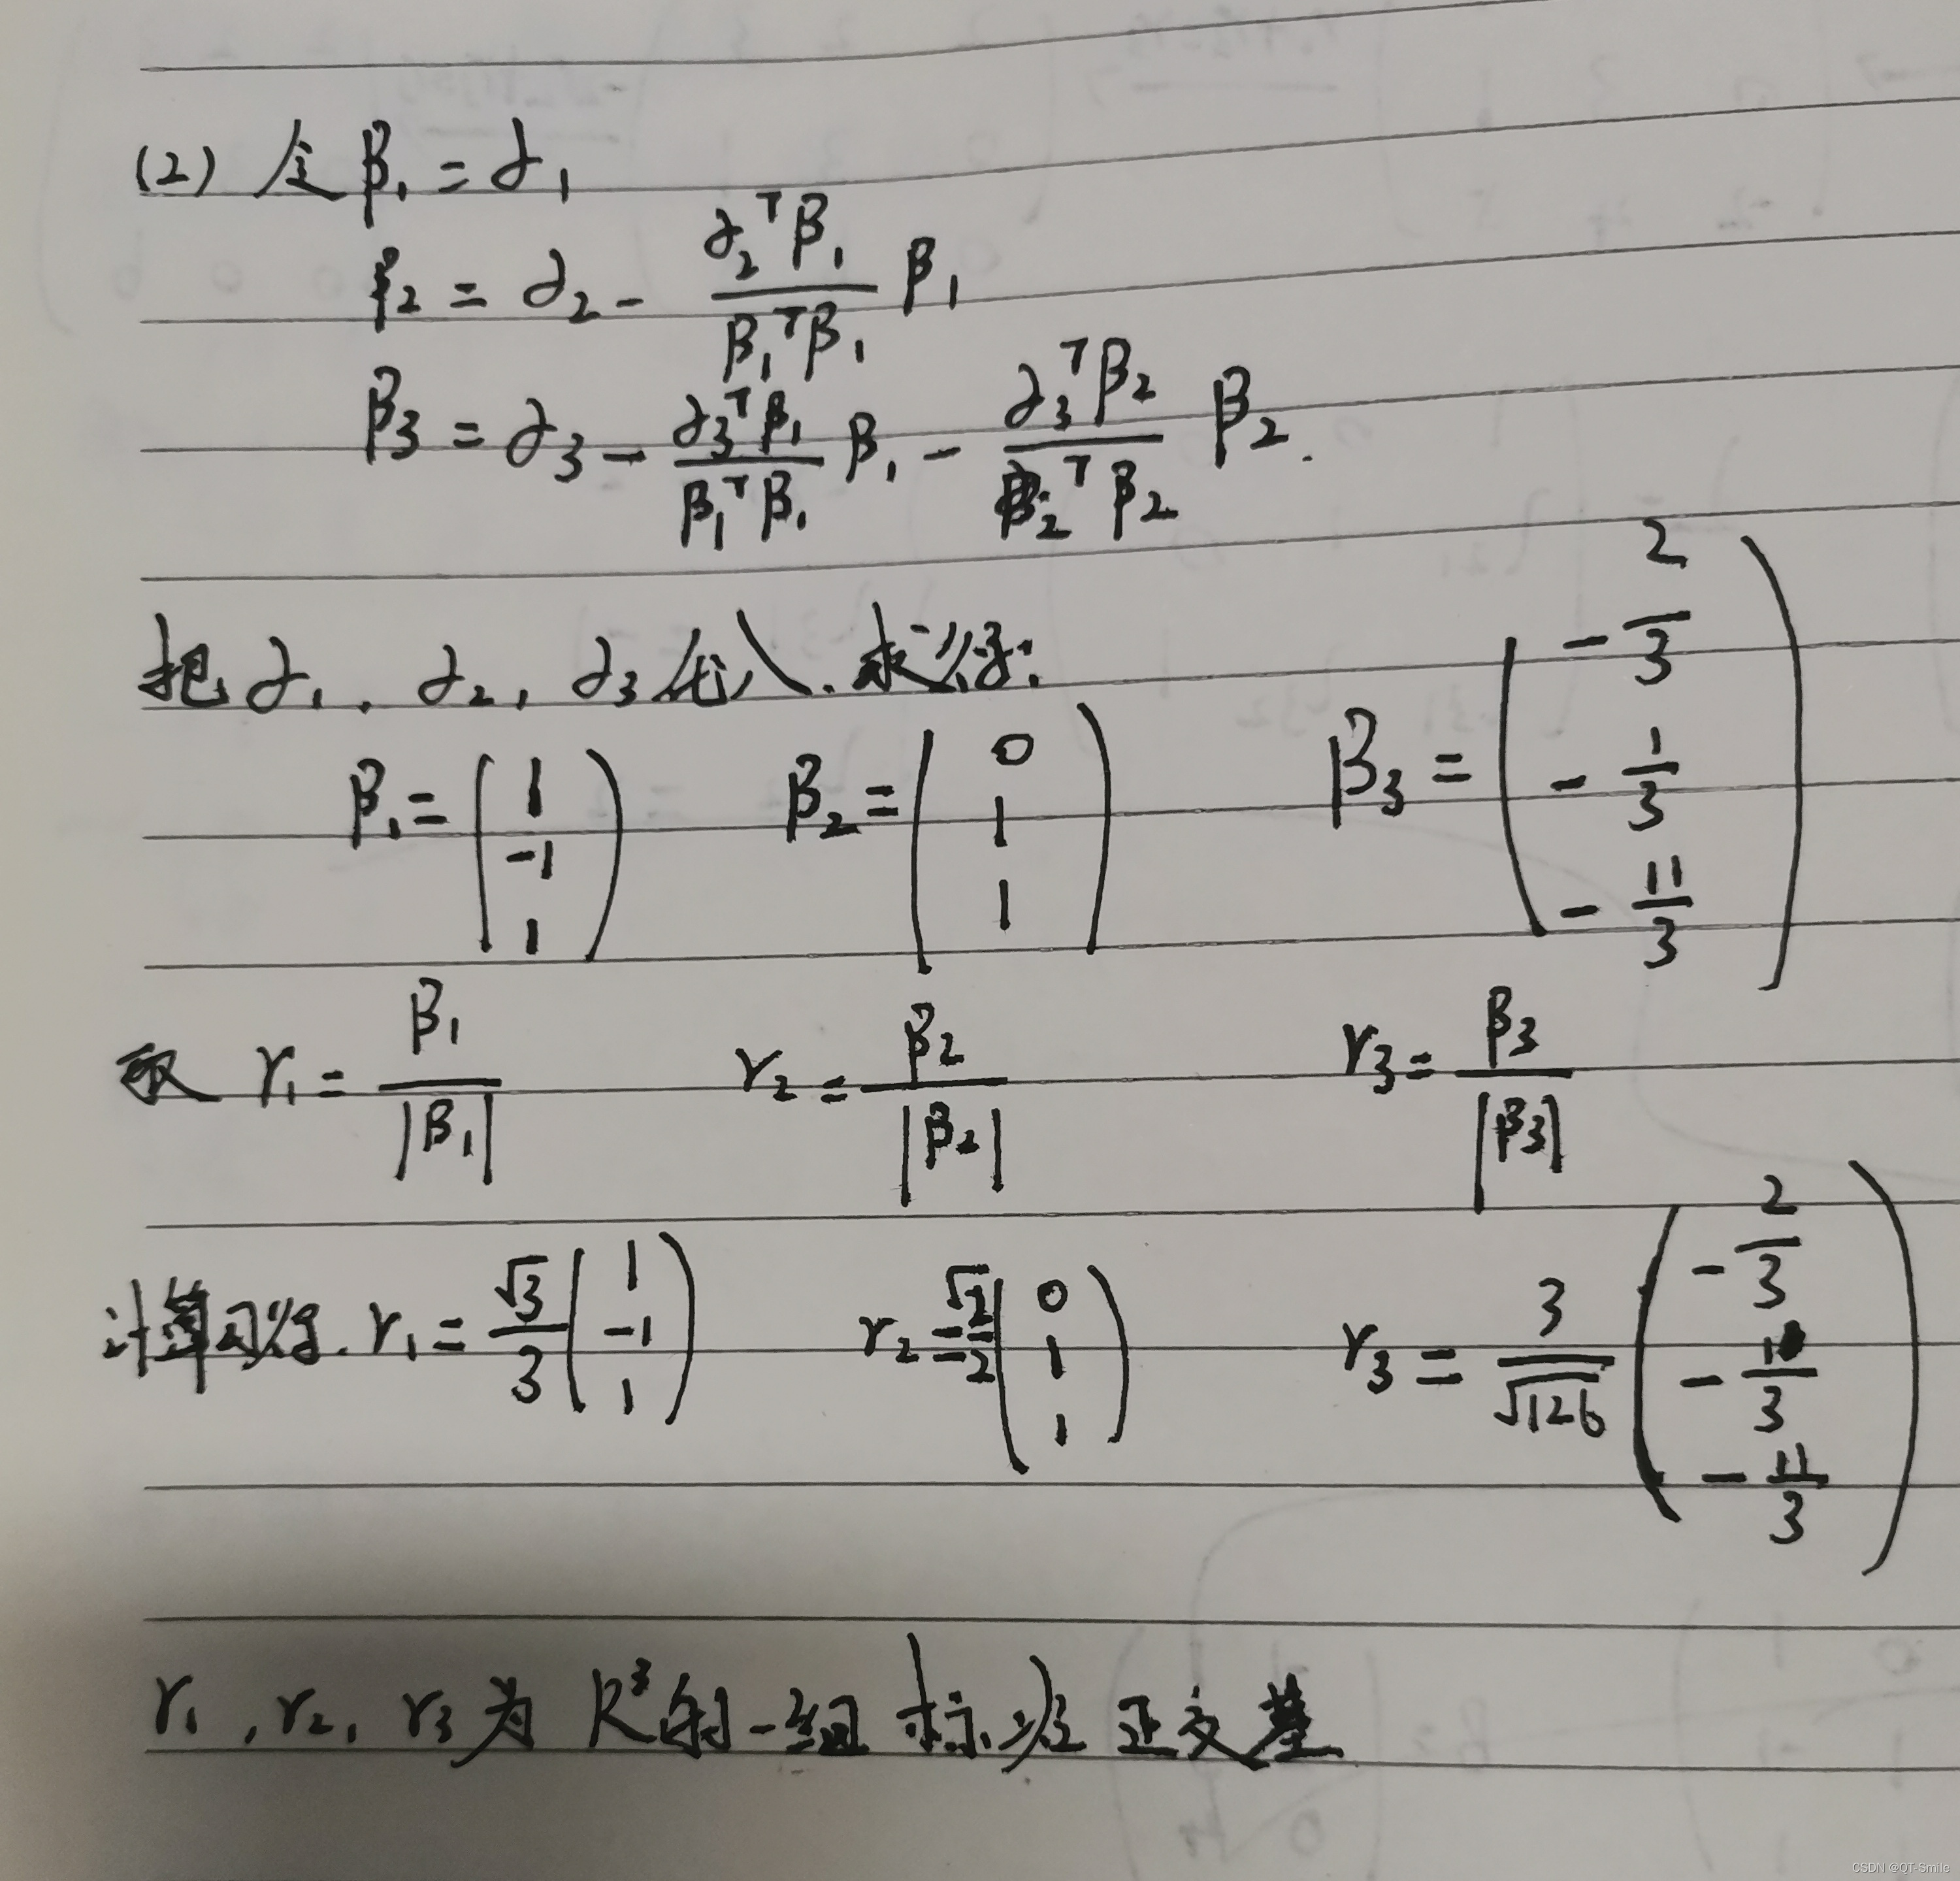 (2) 令 β₁ = α₁
β₂ = α₂ - (α₂ᵀβ₁ / β₁ᵀβ₁) β₁
β₃ = α₃ - (α₃ᵀβ₁ / β₁ᵀβ₁) β₁ - (α₃ᵀβ₂ / β₂ᵀβ₂) β₂.
把 α₁, α₂, α₃ 代入, 求得:
β₁ = (1, -1, 1) β₂ = (0, 1, 1) β₃ = (-2/3, -1/3, -11/3)
取 r₁ = β₁/|β₁| r₂ = β₂/|β₂| r₃ = β₃/|β₃|
计算可得. r₁ = √3/3 (1, -1, 1) r₂ = √2/2 (0, 1, 1) r₃ = 3/√126 (-2/3, -1/3, -11/3)
r₁, r₂, r₃ 为 R³ 的一组标准正交基
CSDN @QT-Smile